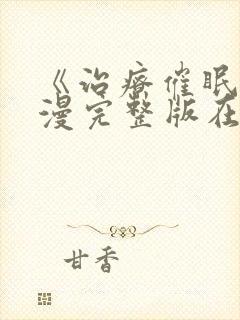 《治疗催眠
漫完整版在
甘香